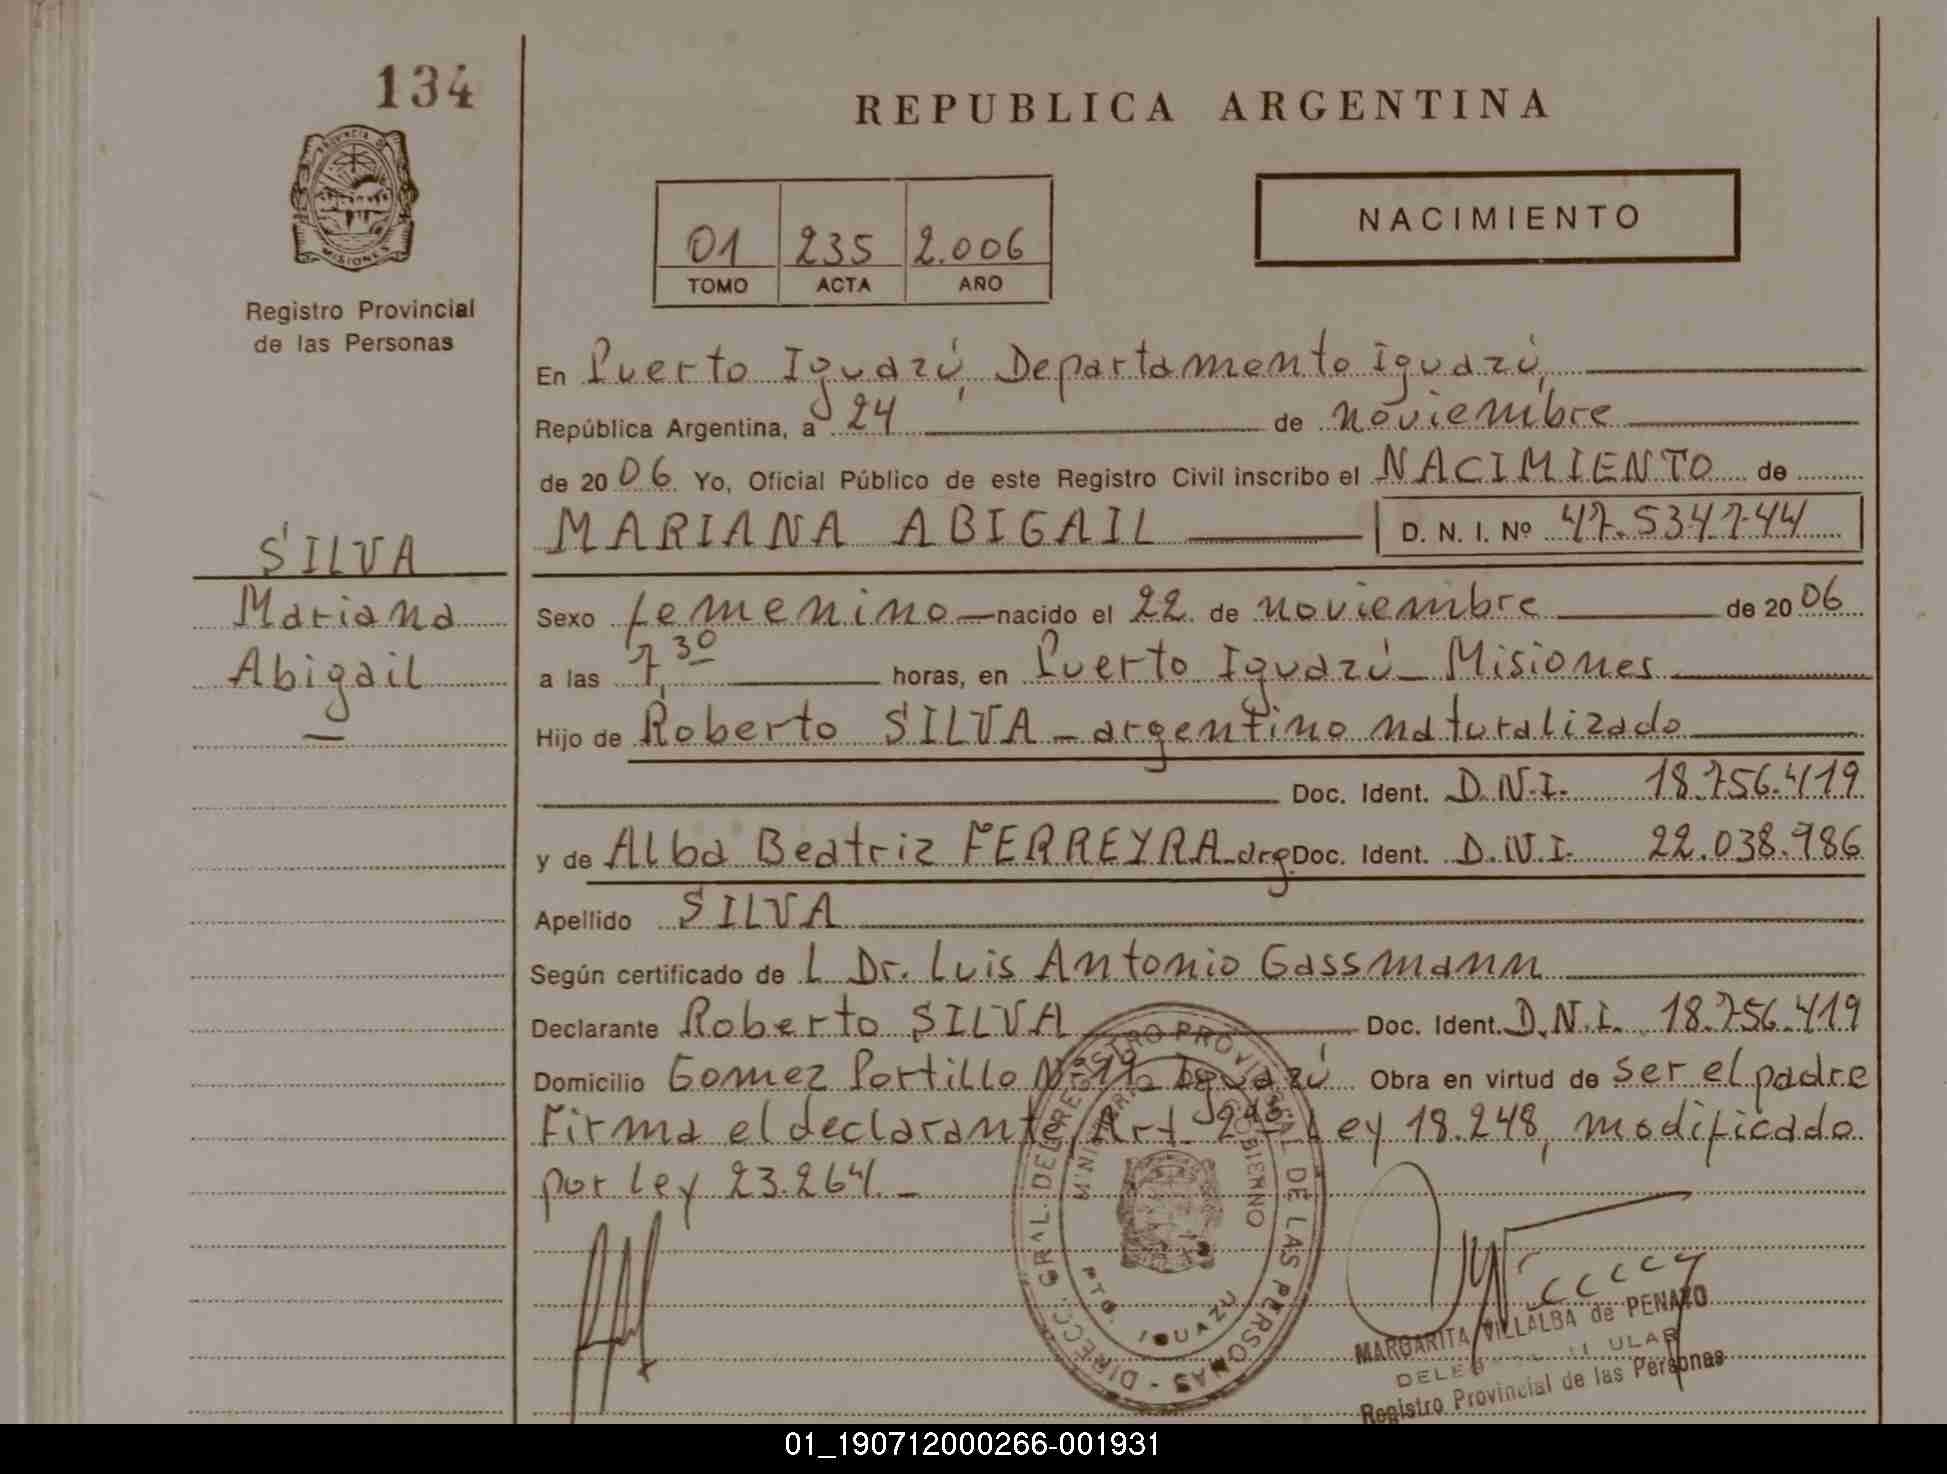 134
REPUBLICA ARGENTINA
PROVINCIA DE MISIONES
Registro Provincial
de las Personas
01 235 2.006
TOMO ACTA AÑO
NACIMIENTO
En Puerto Iguazú, Departamento Iguazú,
República Argentina, a 24 de noviembre
de 2006 Yo, Oficial Público de este Registro Civil inscribo el NACIMIENTO de
MARIANA ABIGAIL D. N. I. Nº 47.534.744
SILVA
Mariana
Abigail
Sexo femenino nacido el 22 de noviembre de 2006
a las 7,30 horas, en Puerto Iguazú - Misiones
Hijo de Roberto SILVA - argentino naturalizado
Doc. Ident. D.N.I. 18.756.419
y de Alba Beatriz FERREYRA - arg. Doc. Ident. D.N.I. 22.038.986
Apellido SILVA
Según certificado de L Dr. Luis Antonio Gassmann
Declarante Roberto SILVA Doc. Ident. D.N.I. 18.756.419
Domicilio Gomez Portillo Nº Iguazú Obra en virtud de ser el padre
Firma el declarante, Art. Ley 18.248, modificado
por Ley 23.264. -
DIRECC. GRAL. DEL REGISTRO PROVINCIAL DE LAS PERSONAS -
GOBIERNO
PTO. IGUAZU
MARGARITA VILLALBA de PENAZO
Registro Provincial de las Personas
01_190712000266-001931